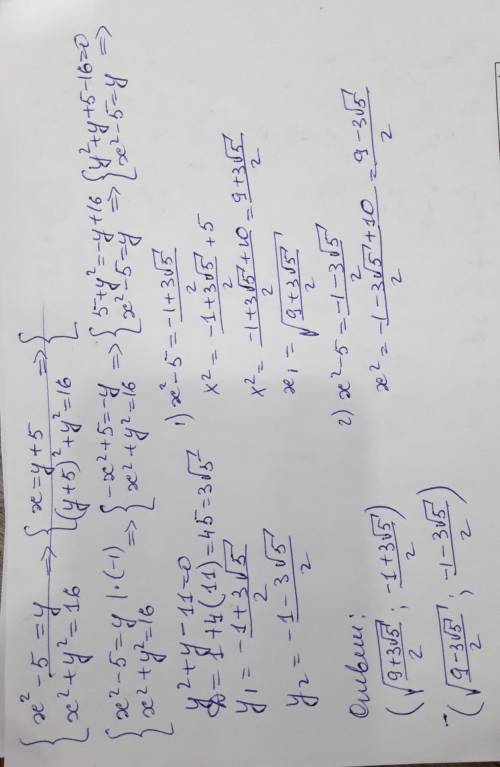 { x² - 5 = y => { x = y + 5 => {
{ x² + y² = 16 { (y+5)² + y² = 16 {
{ x² - 5 = y | · (-1) => { -x² + 5 = -y => { 5 + y² = -y + 16 => { y² + y + 5 - 16 = 0 =>
{ x² + y² = 16 { x² + y² = 16 { x² - 5 = y { x² - 5 = y
y² + y - 11 = 0
D = 1 + 4(11) = 45 = 3√5
y₁ = (-1 + 3√5)/2
y₂ = (-1 - 3√5)/2
1) x² - 5 = (-1 + 3√5)/2
x² = (-1 + 3√5)/2 + 5
x² = (-1 + 3√5 + 10)/2 = (9 + 3√5)/2
x₁ = √((9 + 3√5)/2)
2) x² - 5 = (-1 - 3√5)/2
x² = (-1 - 3√5 + 10)/2 = (9 - 3√5)/2
Ответ:
(√((9 + 3√5)/2) ; (-1 + 3√5)/2)
(√((9 - 3√5)/2) ; (-1 - 3√5)/2)